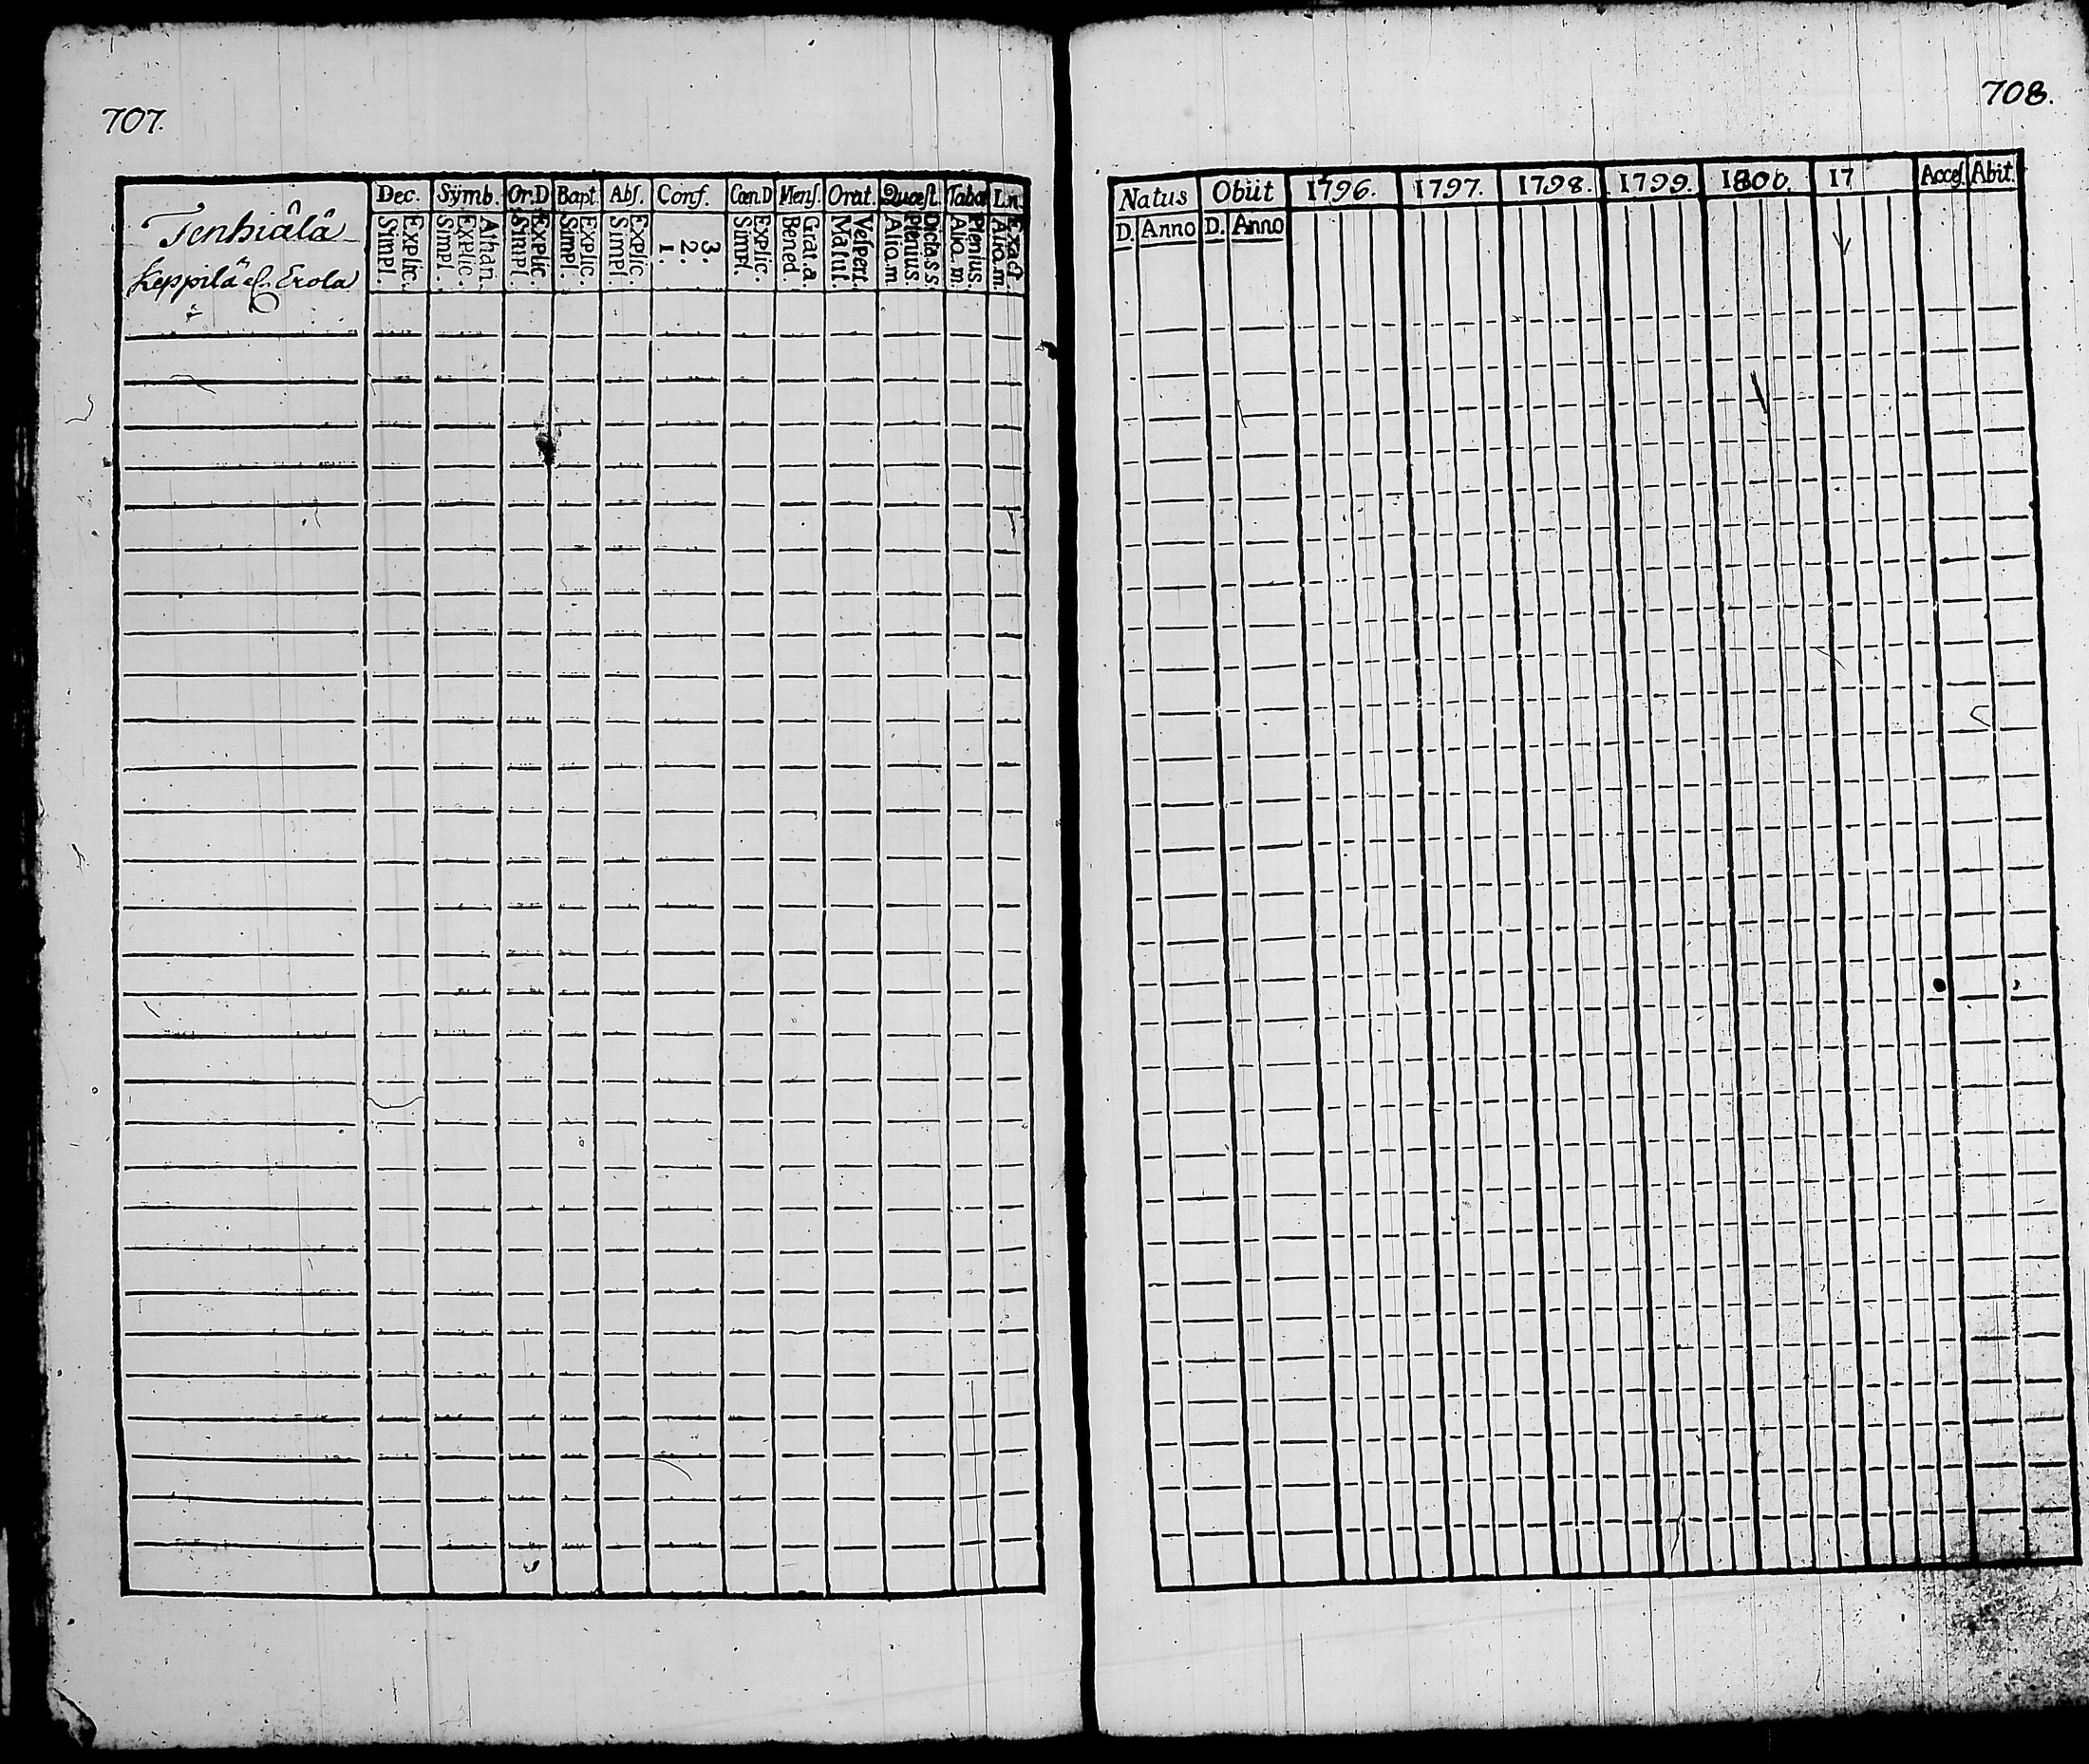 707.
Tenhiälä
Keppilä &. Erola
Dec. Symb. Or.D Bapt. Abſ. Conf. Cœn.D Menſ. Orat. Quæſt. Taba L.n.
Explic. Simpl.
Athan. Explic. Simpl.
Explic. Simpl.
Explic. Simpl.
Explic. Simpl.
3. 2. 1.
Explic. Simpl.
Grat.a. Bened.
Veſpert. Matut.
Dicta.s.s. Plenius. Alio.m
Plenius. Alio.m.
Exact. Alio.m.
708.
Natus Obiit 1796. 1797. 1798. 1799. 1800. 17 Acceſ. Abit.
D. Anno D. Anno